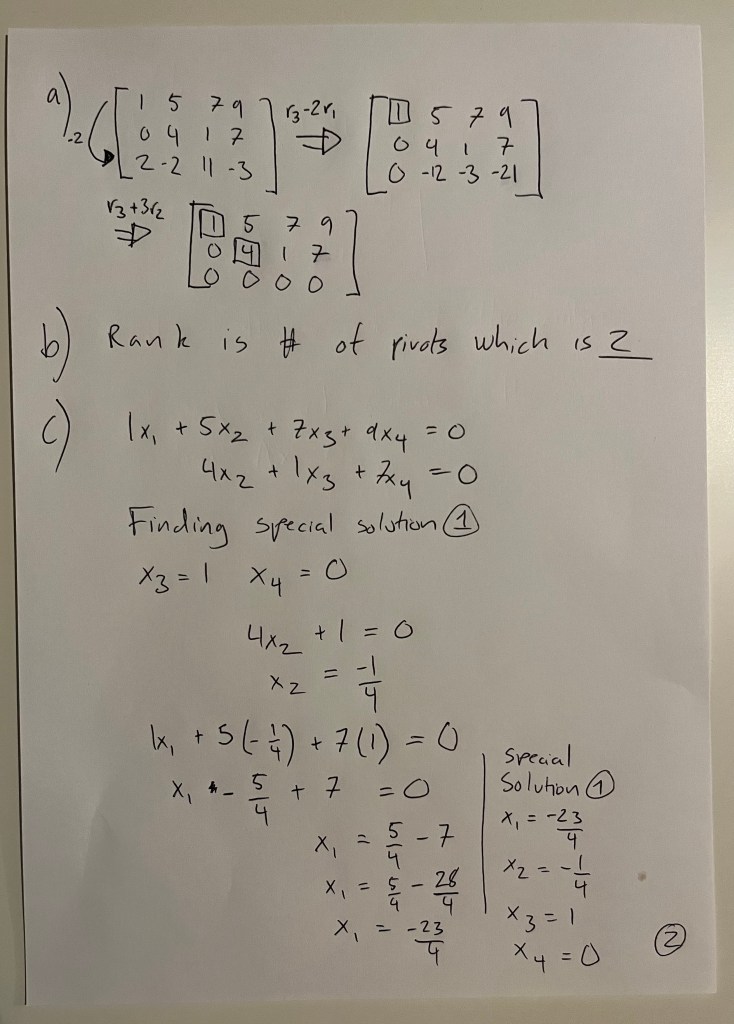 a) -2 [ 1 5 7 9 ] r3-2r1 ⇒ [ 1 5 7 9 ]
[ 0 4 1 7 ] [ 0 4 1 7 ]
[ 2 -2 11 -3 ] [ 0 -12 -3 -21 ]
r3+3r2 ⇒ [ 1 5 7 9 ]
[ 0 4 1 7 ]
[ 0 0 0 0 ]
b) Rank is # of pivots which is 2
c) 1x₁ + 5x₂ + 7x₃ + 9x₄ = 0
4x₂ + 1x₃ + 7x₄ = 0
Finding special solution ①
x₃ = 1 x₄ = 0
4x₂ + 1 = 0
x₂ = -1/4
1x₁ + 5(-1/4) + 7(1) = 0
x₁ - 5/4 + 7 = 0
x₁ = 5/4 - 7
x₁ = 5/4 - 28/4
x₁ = -23/4
special
Solution ①
x₁ = -23/4
x₂ = -1/4
x₃ = 1
x₄ = 0
②